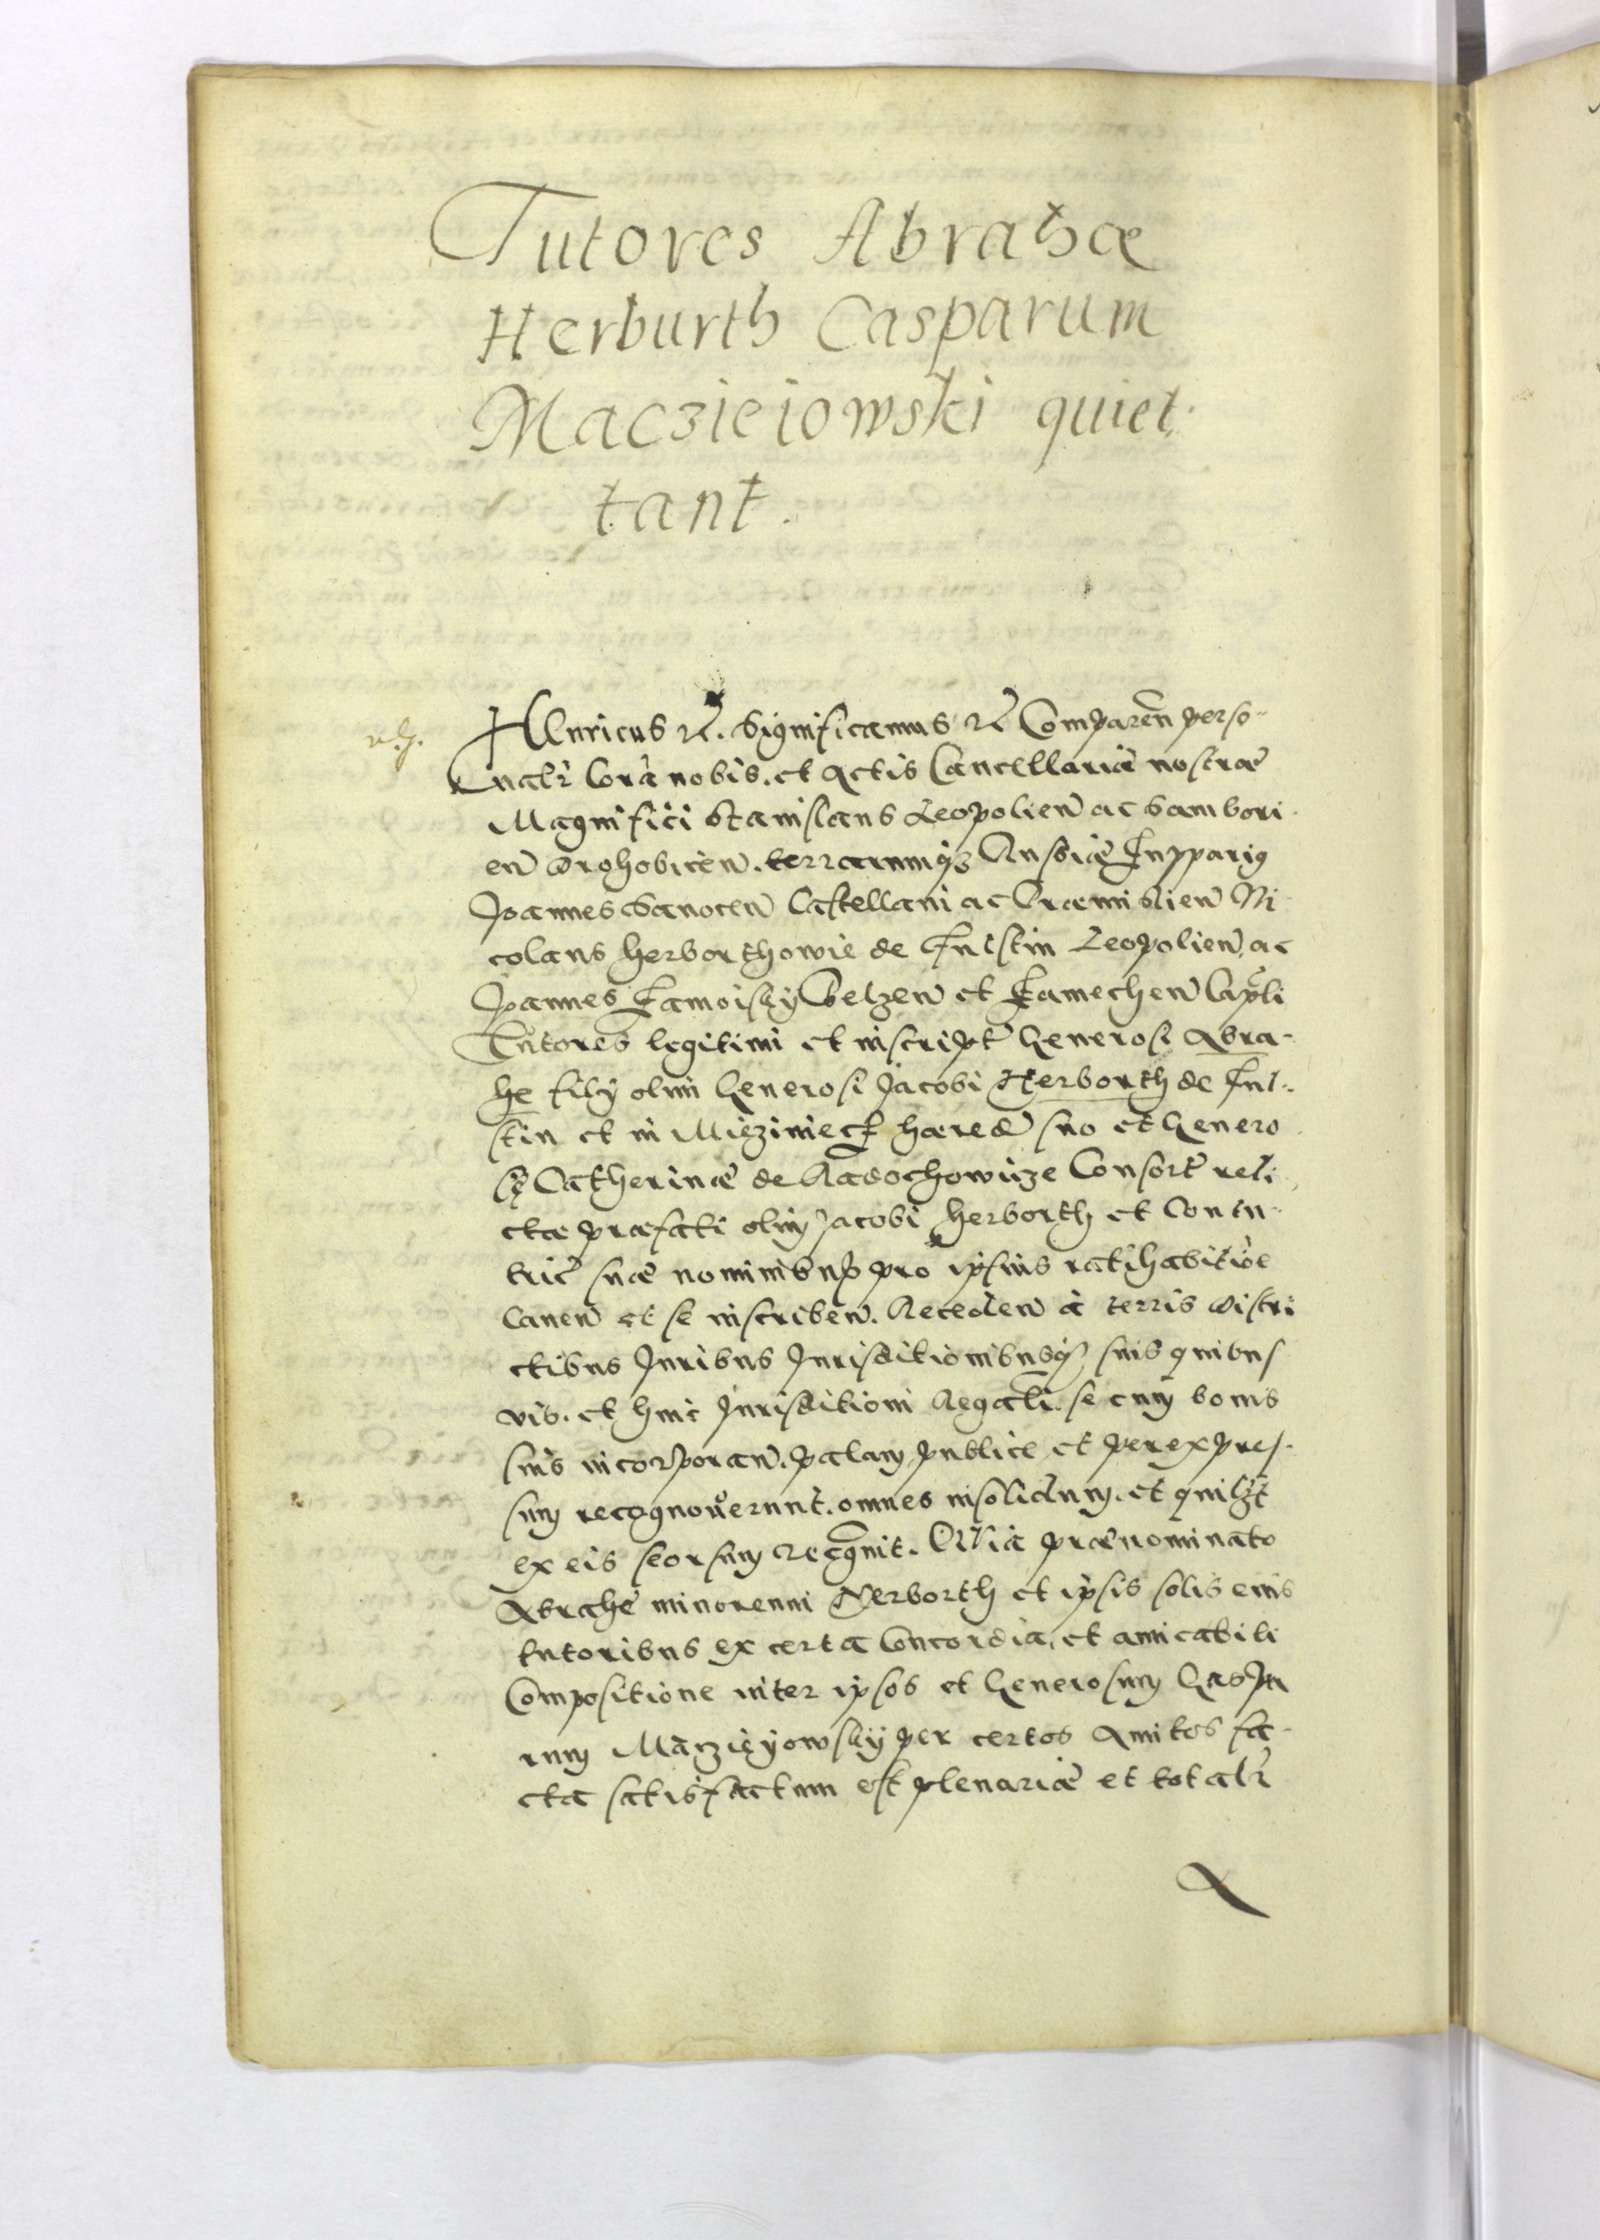 Tutores Abrahæ
Herburth Casparum
Maczieiowski quiet
tant.
HEnricus etc. Significamus etc Comparen̄ perso-
nalr̄ Corā nobis. et Actis Cancellariæ nostræ
Magnifici Stanislaus Leopolien̄ ac Sambori
en̄ Drohobicen̄. terrarumq3 Russiæ Suppari9
Joannes Sanocen̄ Castellani ac Præmislien̄ Ni
colaus Herborthowie de Fulstin Leopolien̄, ac
Joannes Zamoisky Belzen̄ et Zamechen̄ Cap̄li
Tutores legitimi et inscript̄ Generosi Abra-
he filÿ olim Generosi Jacobi Herborth de Ful-
stin et in hæred̄ suo et Genero
sę Catherinæ de Consort̄ reli
ctæ præfati olim Jacobi Herborth et Con
tric̄ suæ nominibus pro ipsius ratihabitiōe
Caven̄ et se inscriben̄. Receden̄ à terris distri
ctibus Juribus Jurisditionibusq3 suis quibus
vis. et huic Jurisditioni Regali. se cum bonis
suis incorporan̄. palam publice et per expres-
sum recognoverunt. omnes insolidum. et quilzt
ex eis seorsum recognuit. Quia prænominato
Abrahe minorenni Herborth et ipsis solis eius
tutoribus ex certa Concordia, et amicabili
Compositione inter ipsos et Generosum Caspa
rum Maczięyowsky per certos Amicos fa-
cta satisfactum est plenariæ et totalr̄